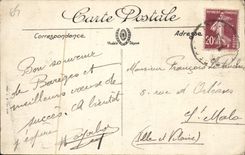 Carte Postale
Correspondance
Adresse
20
Bon souvenir
de Barèges et
meilleurs voeux de
succès. A bientôt
j'espère
Monsieur François
8 rue d'Orléans
St Malo
(Ille et Vilaine)